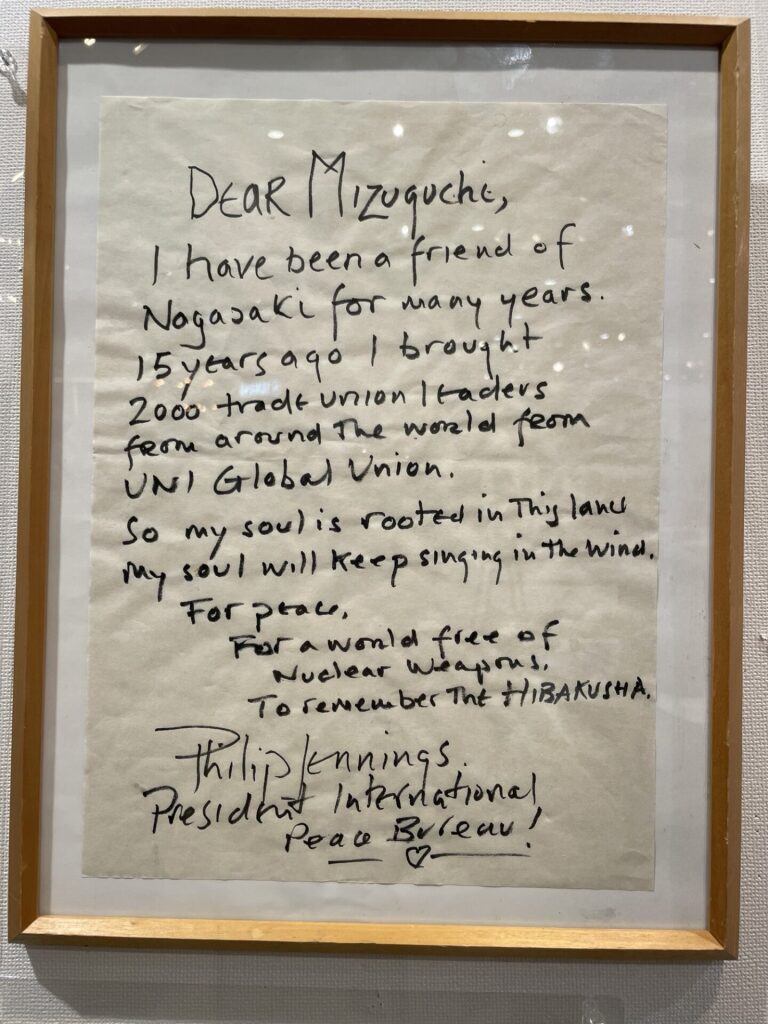 DEAR Mizuguchi,
I have been a friend of
Nagasaki for many years.
15 years ago I brought
2000 trade union leaders
from around the world from
UNI Global Union.
So my soul is rooted in this land
my soul will keep singing in the wind.
For peace,
For a world free of
Nuclear Weapons.
To remember the HIBAKUSHA.
Philip Jennings.
President International
Peace Bureau!